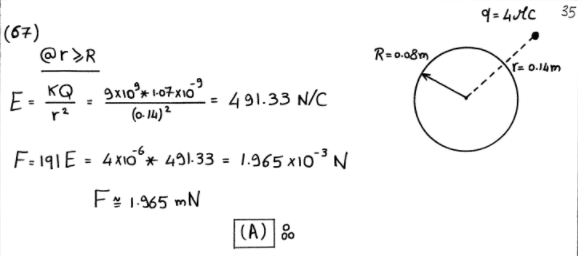 (67)
@ r ≥ R
E = KQ / r² = 9×10⁹ * 1.07×10⁻⁹ / (0.14)² = 491.33 N/C
F = |q|E = 4×10⁻⁶ * 491.33 = 1.965 ×10⁻³ N
F ≅ 1.965 mN
(A)
q = 4 μC
35
R = 0.08m
r = 0.14m